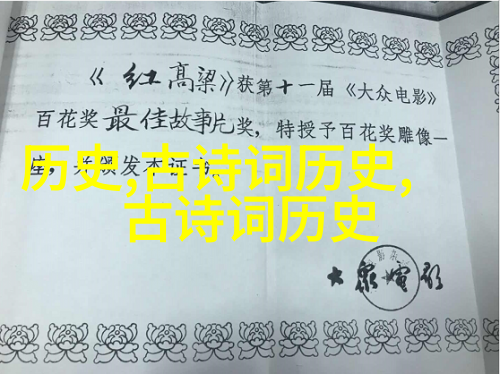 《红高粱》获第十一届《大众电影》
百花奖最佳故事片奖，特授予百花奖雕像一
座，并颁发本证书
历史,古诗词历史,
古诗词历史
大众电影